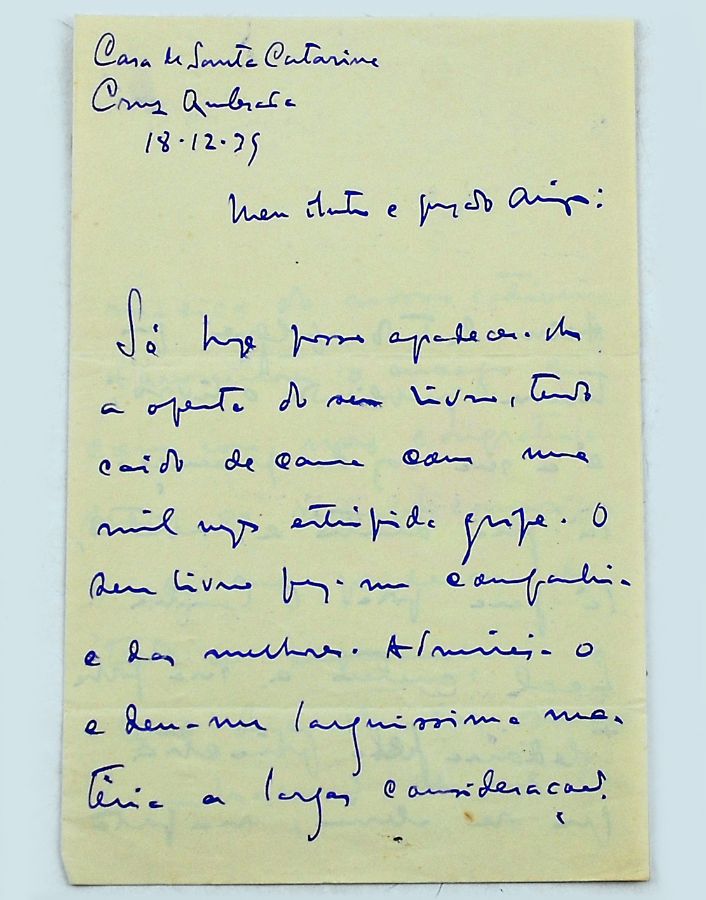 Casa de Santa Catarina
Cruz Quebrada
18-12-39
Meu ilustre e prezado Amigo:
Só hoje posso agradecer-lhe
a oferta do seu livro, tendo
caido de cama com uma
mil vezes estupida gripe. O
seu livro fez-me companhi-
a das melhores. Admirei-o
e deu-me larguissima ma-
téria a largas considerações.